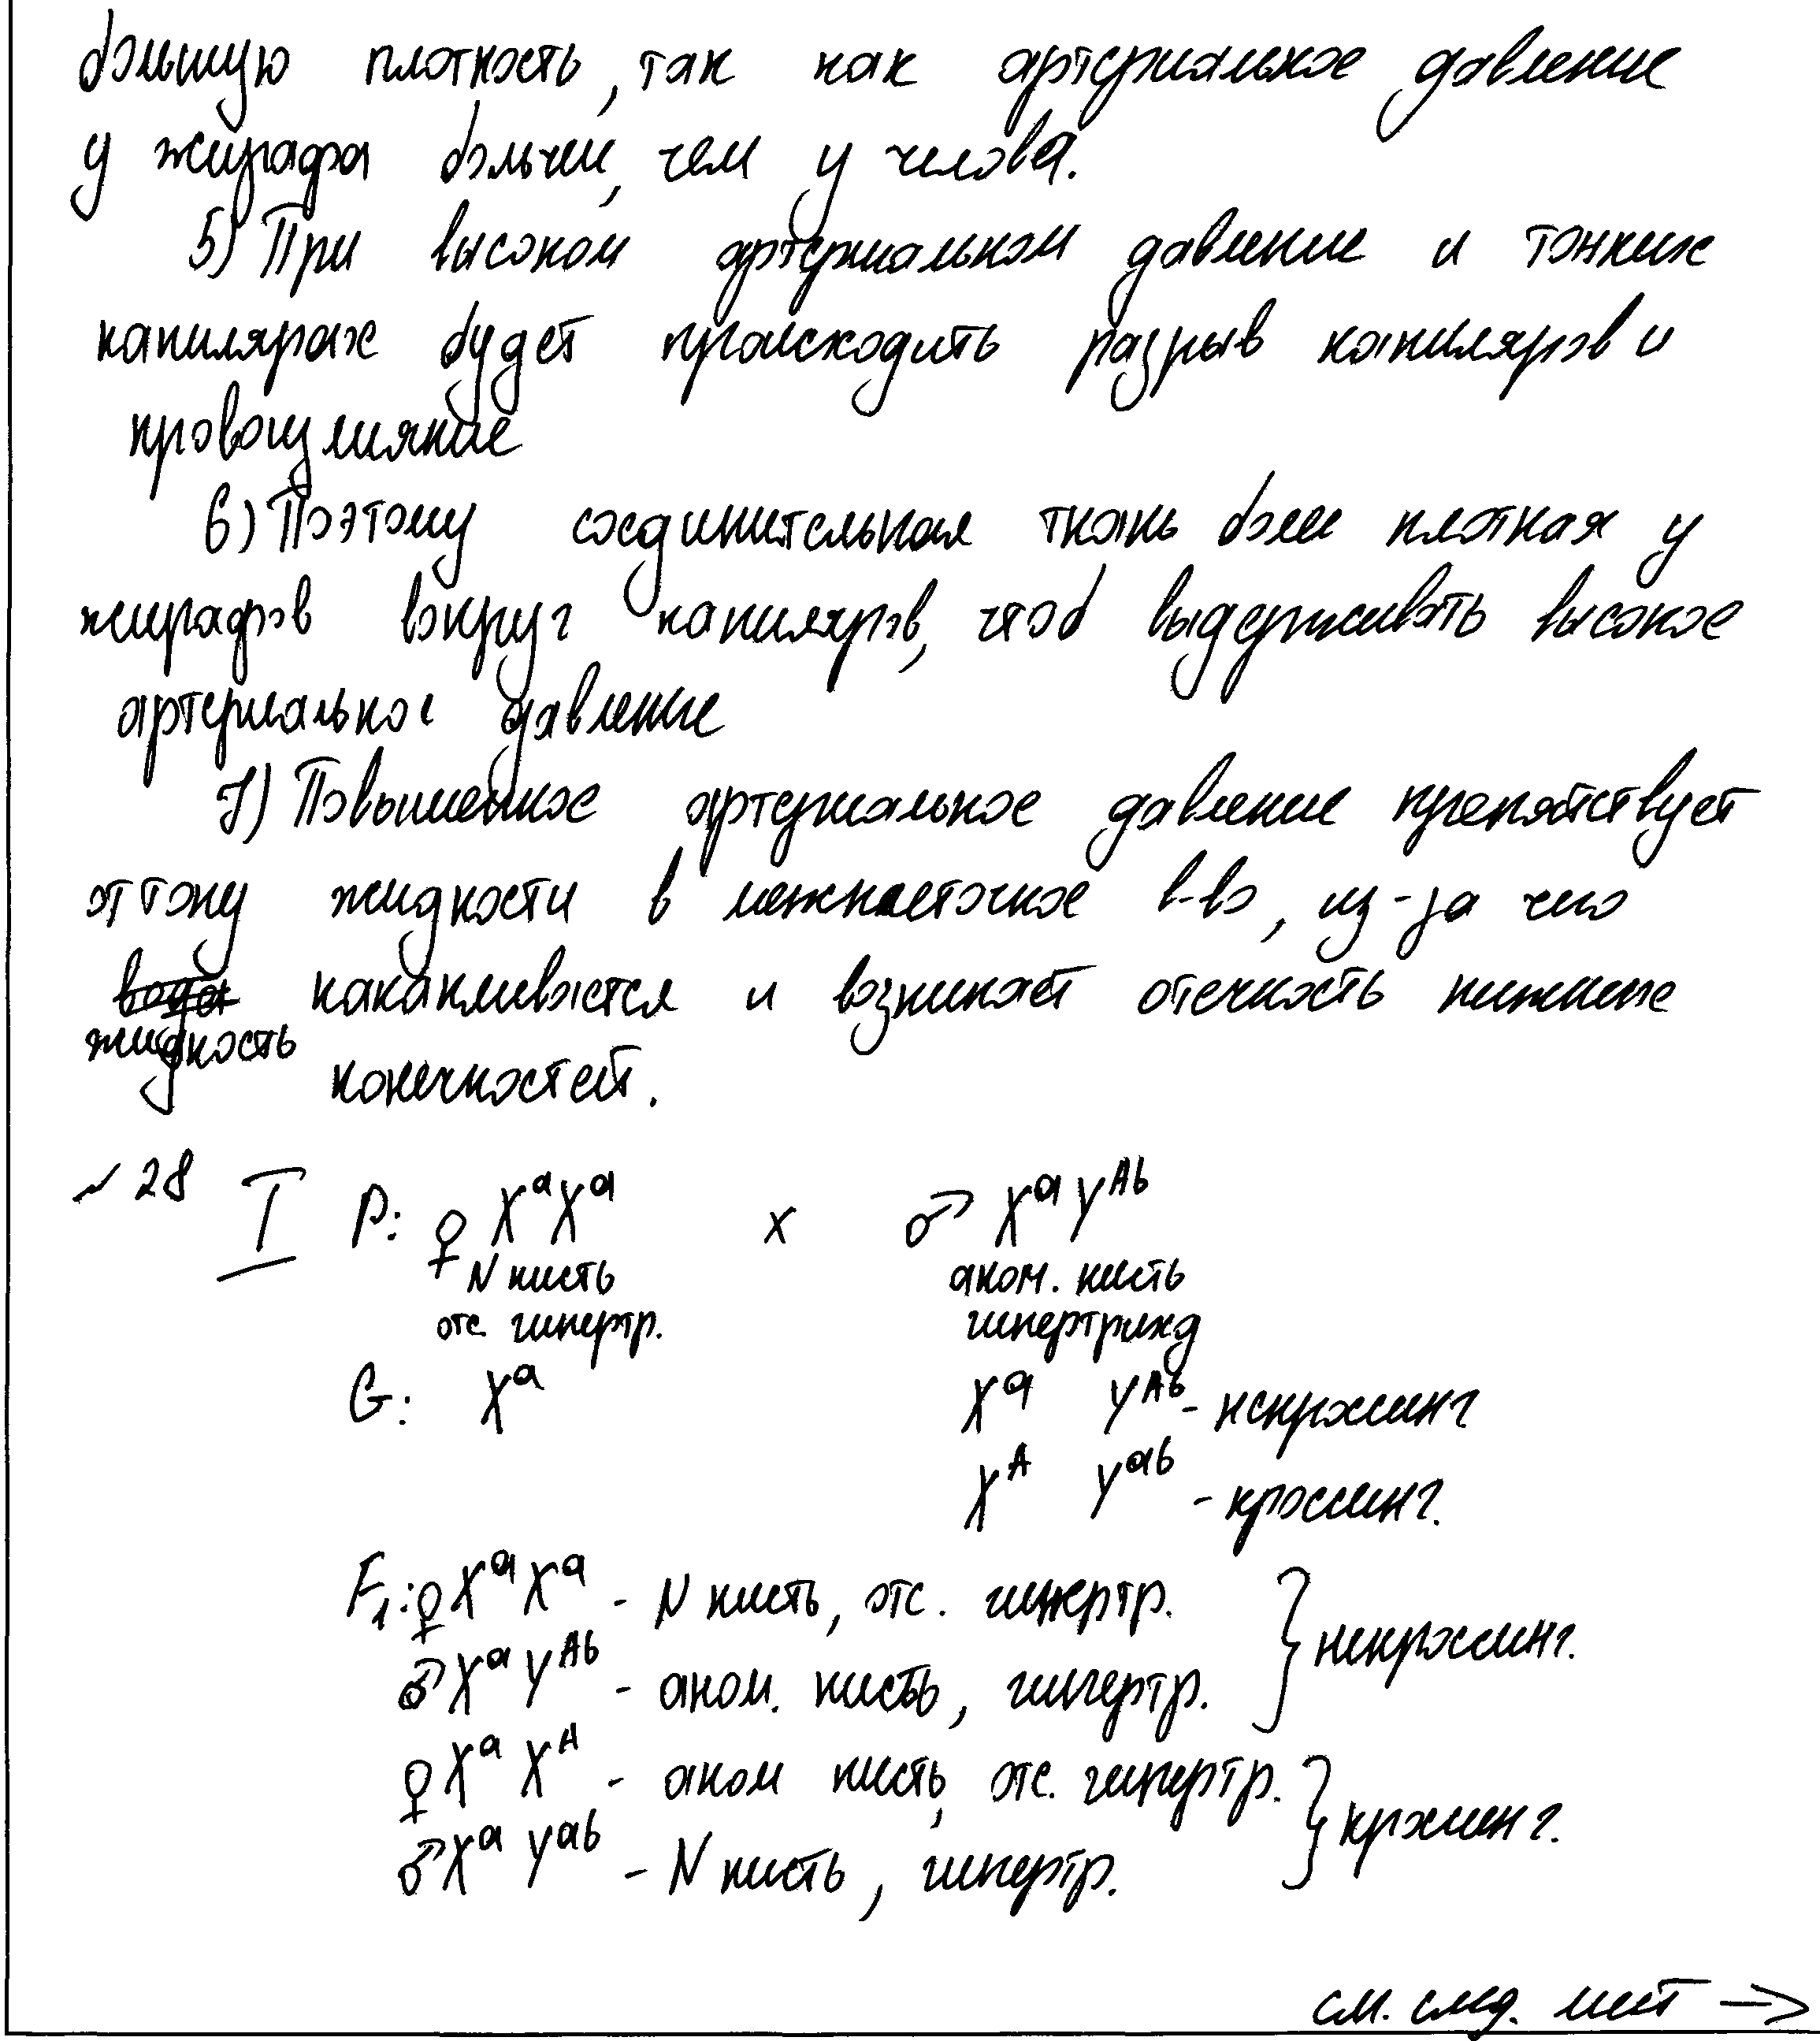 большую плотность, так как артериальное давление
у жирафа больчеи, чем у челова.
5) При высоком артериальном давление и тонких
капилярах будет происходить разрыв капиляров и
кровоизлияние
6) Поэтому соединительная ткань боле плотная у
жирафов вокруг капиляров, чтоб выдерживать высокое
артериальное давление
7) Повышенное артериальное давление препятствует
оттоку жидкости в межклеточное в-во, из-за чего
вода накапливается и возникает отечность нижних
жидкость
конечностей.
~ 28 I P: ♀ XᵃXᵃ x ♂ XᵃYᴬᵇ
N кисть аном. кисть
отс. гипертр. гипертрихд
G: Xᵃ Xᵃ Yᴬᵇ - некроссинг
Xᴬ Yᵃᵇ - кроссинг.
F₁: ♀ XᵃXᵃ - N кисть, отс. гипертр.
♂ XᵃYᴬᵇ - аном. кисть, гипертр. } некроссинг.
♀ XᵃXᴬ - аном кисть, отс. гипертр.
♂ XᵃYᵃᵇ - N кисть, гипертр. } кроссинг.
см. след. лист →